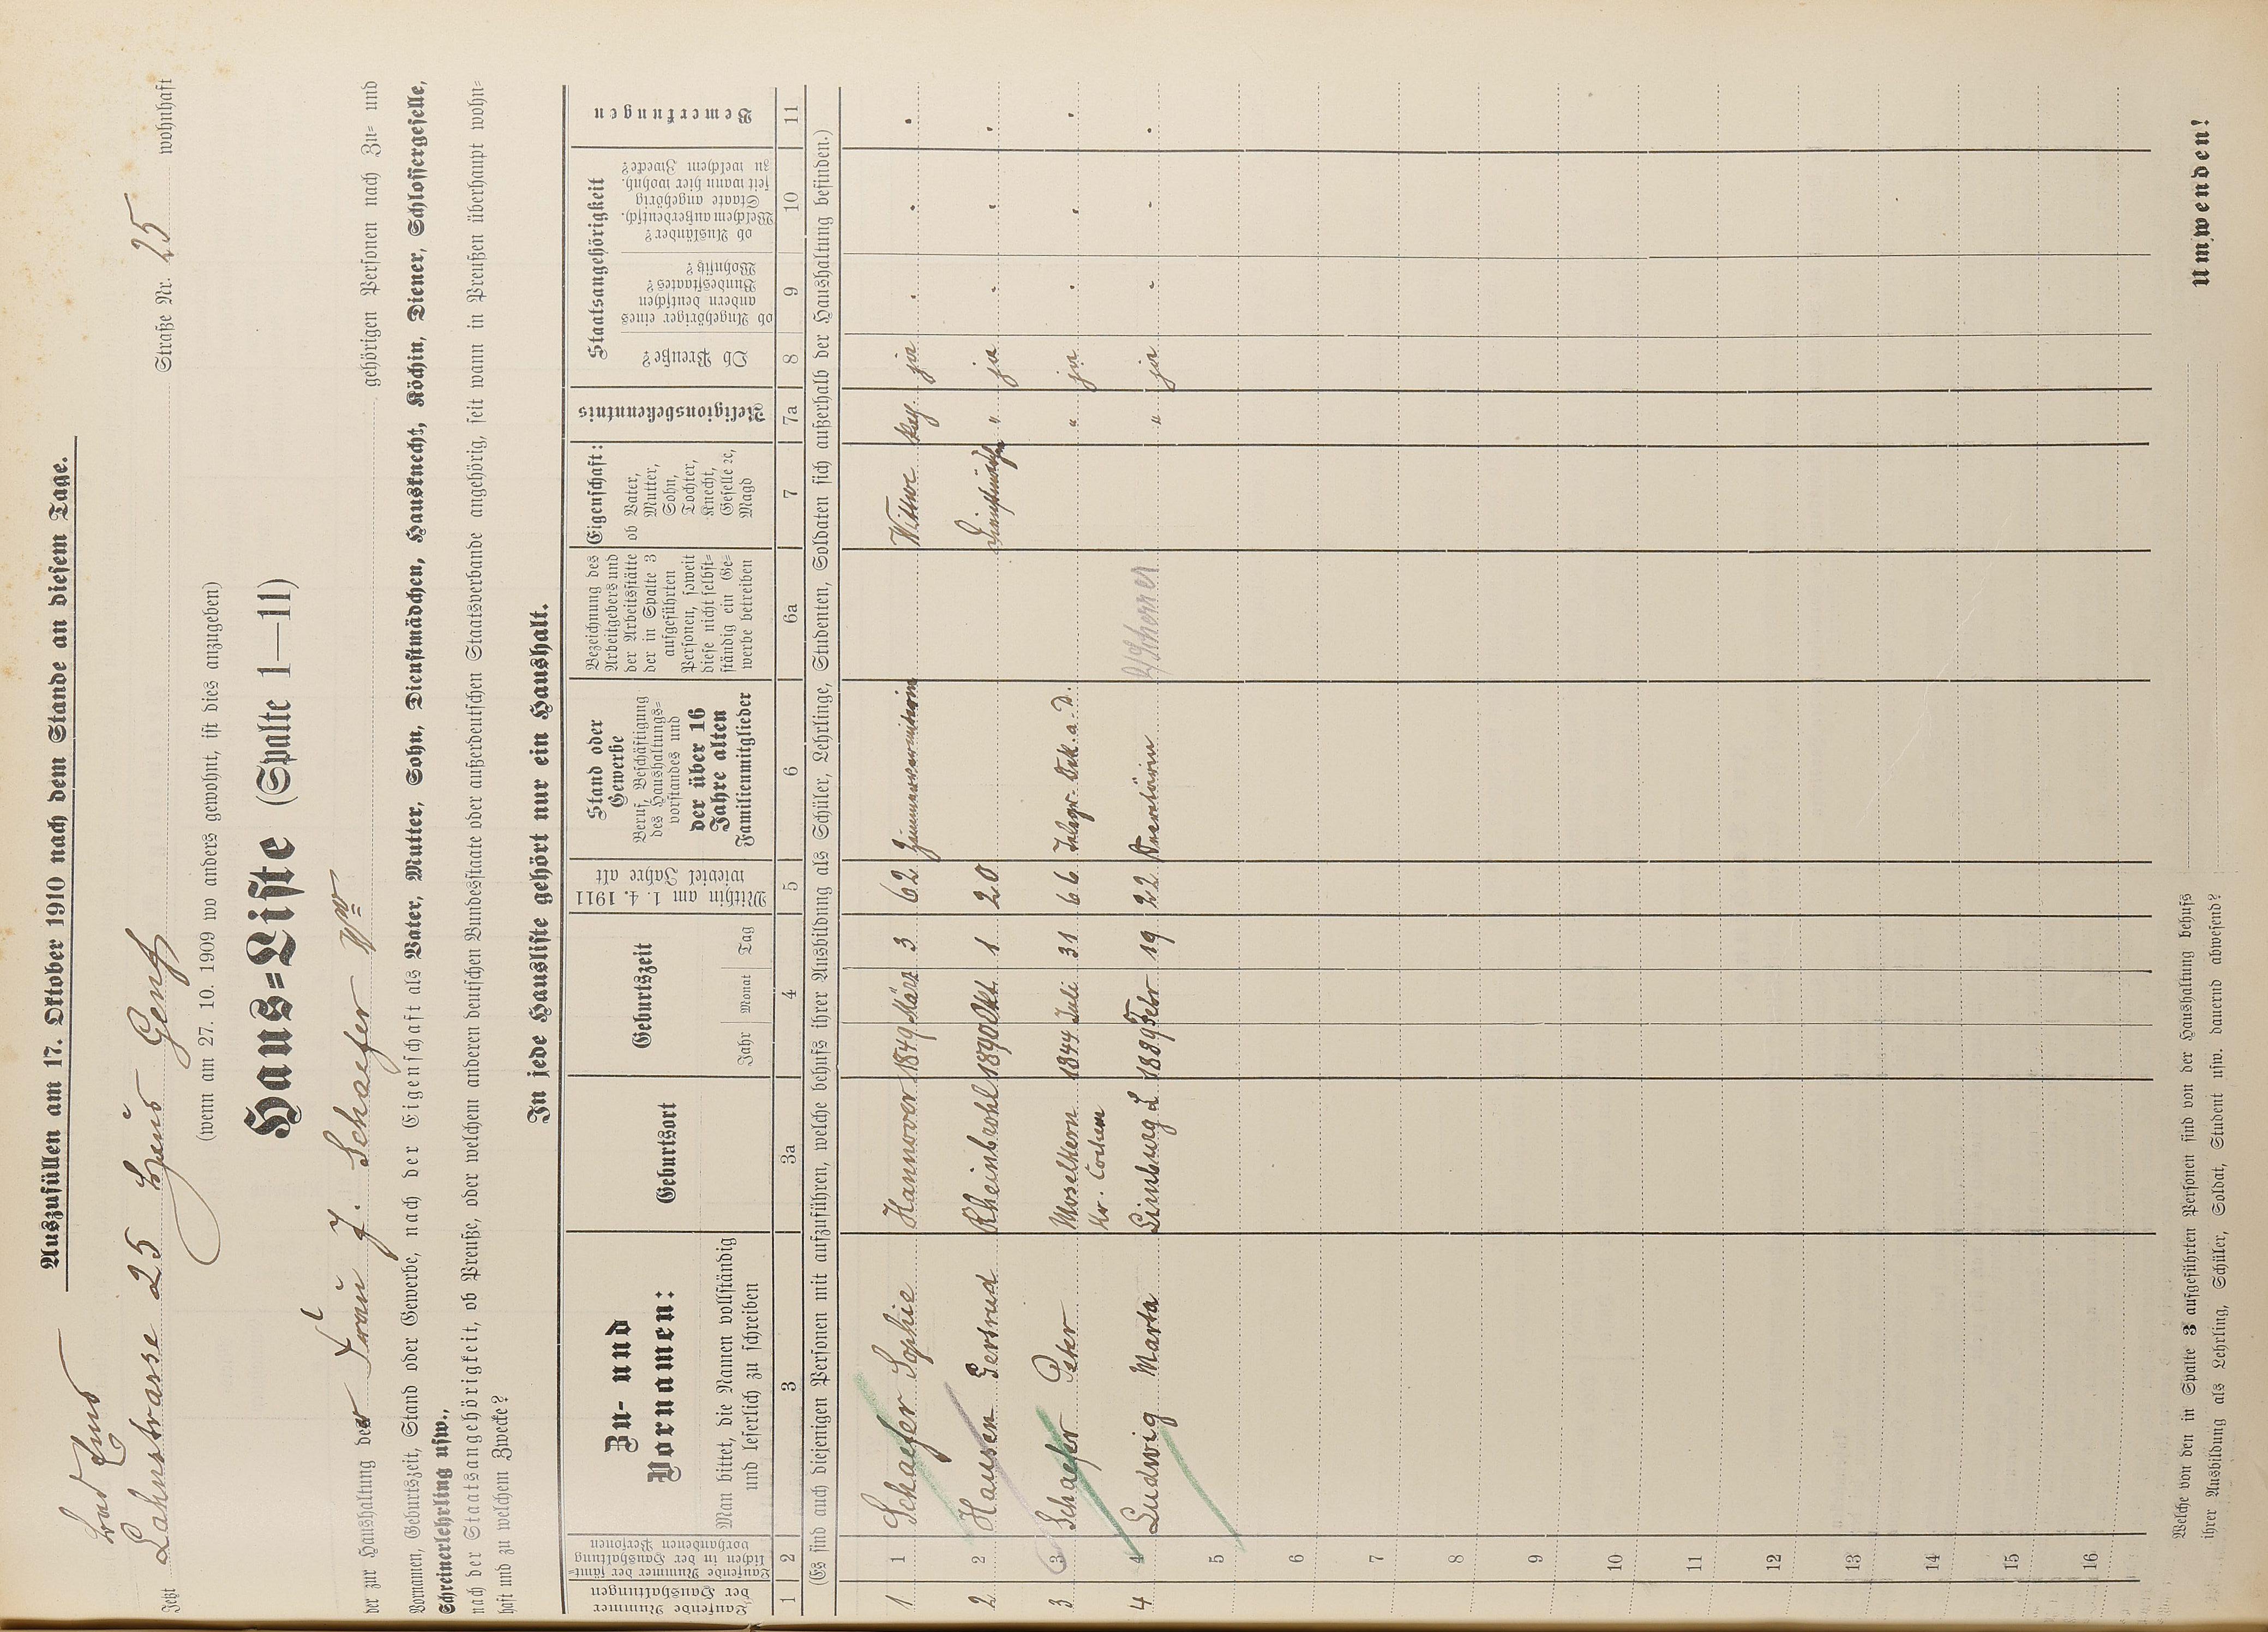 Auszufüllen am 17. Oktober 1910 nach dem Stande an diesem Tage.
Bad Ems
Jetzt Lahnstrasse 25 Haus Genf Straße Nr. 25 wohnhaft
(wenn am 27. 10. 1909 wo anders gewohnt, ist dies anzugeben)
Haus=Liste (Spalte 1—11)
der zur Haushaltung der Frau J. Schaefer Ww gehörigen Personen nach Zu= und
Vornamen, Geburtszeit, Stand oder Gewerbe, nach der Eigenschaft als Vater, Mutter, Sohn, Dienstmädchen, Hausknecht, Köchin, Diener, Schlossergeselle,
Schreinerlehrling usw.,
nach der Staatsangehörigkeit, ob Preuße, oder welchem anderen deutschen Bundesstaate oder außerdeutschen Staatsverbande angehörig, seit wann in Preußen überhaupt wohn=
haft und zu welchem Zwecke?
In jede Hausliste gehört nur ein Haushalt.
Laufende Nummer der Haushaltungen
Laufende Nummer der sämt=lichen in der Haushaltung vorhandenen Personen
Zu- und Vornamen:
Man bittet, die Namen vollständig und leserlich zu schreiben
Geburtsort
Geburtszeit
Jahr Monat Tag
Mithin am 1. 4. 1911 wieviel Jahre alt
Stand oder Gewerbe
Beruf, Beschäftigung des Haushaltungs=vorstandes und der über 16 Jahre alten Familienmitglieder
Bezeichnung des Arbeitgebers und der Arbeitsstätte der in Spalte 3 aufgeführten Personen, soweit diese nicht selbst=ständig ein Ge=werbe betreiben
Eigenschaft:
ob Vater, Mutter, Sohn, Tochter, Knecht, Geselle ꝛc, Magd
Religionsbekenntnis
Staatsangehörigkeit
Ob Preuße?
ob Angehöriger eines andern deutschen Bundesstaates? Wohnsitz?
ob Ausländer? Welchem außerdeutsch. Staate angehörig seit wann hier wohnh. zu welchem Zwecke?
Bemerkungen
1 2 3 3a 4 5 6 6a 7 7a 8 9 10 11
(Es sind auch diejenigen Personen mit aufzuführen, welche behufs ihrer Ausbildung als Schüler, Lehrlinge, Studenten, Soldaten sich außerhalb der Haushaltung befinden.)
1 1 Schaefer Sophie Hannover 1849 März 3 62 Zimmervermieterin Witwe ja
2 2 Hausen Gertrud Rheinbrohl 1890 Okt. 1 20 Dienstmädchen " ja
3 3 Schaefer Peter Moselkern 1844 Juli 31 66 Telegr. Sek. a. D. " ja
Kr. Cochem
4 4 Ludwig Marta Limburg L 1889 Febr 19 22 " ja
5
6
7
8
9
10
11
12
13
14
15
16
Welche von den in Spalte 3 aufgeführten Personen sind von der Haushaltung behufs
ihrer Ausbildung als Lehrling, Schüler, Soldat, Student usw. dauernd abwesend?
Umwenden!